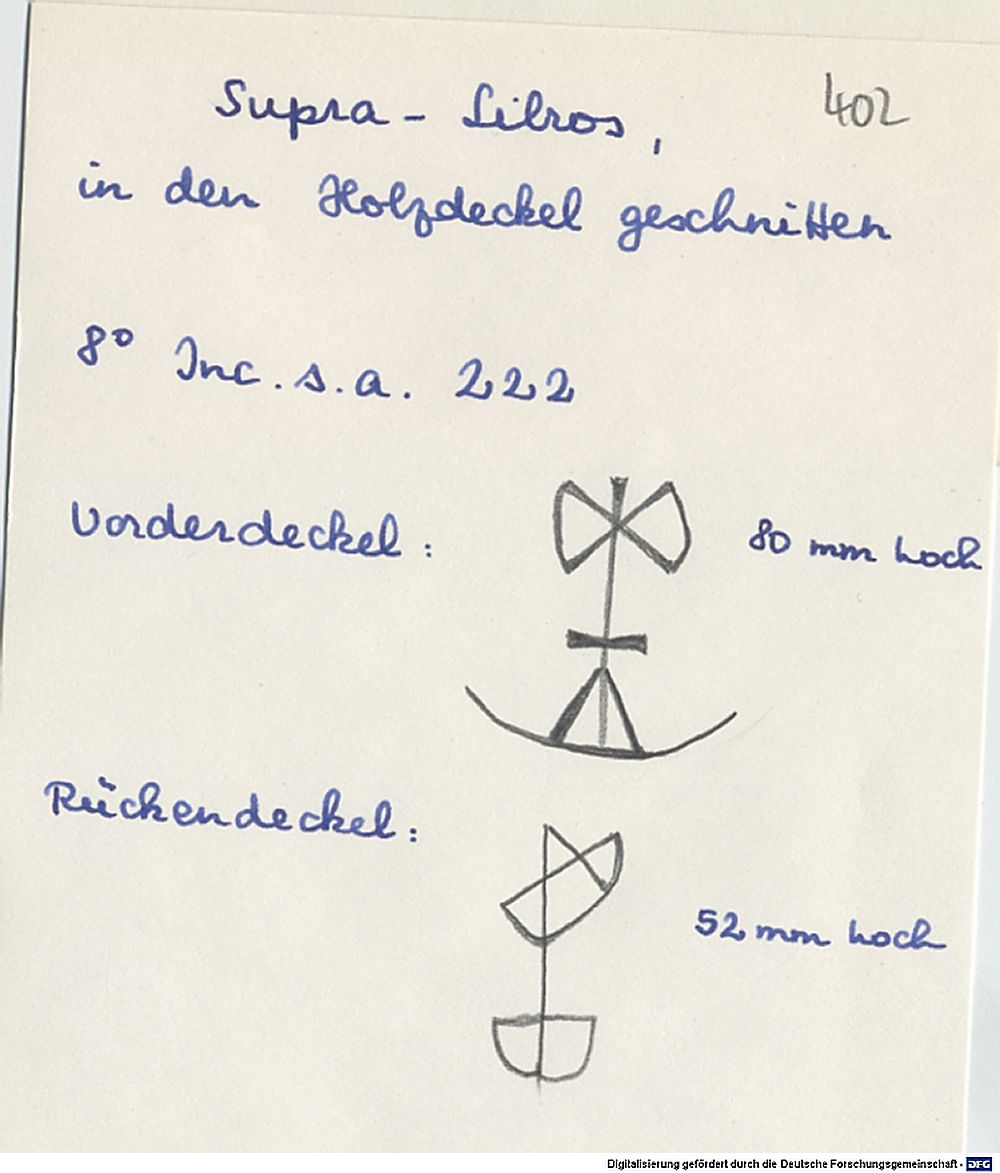 402
Supra - Libros,
in den Holzdeckel geschnitten
8° Inc. s. a. 222
Vorderdeckel: 80 mm hoch
Rückendeckel:
52 mm hoch
Digitalisierung gefördert durch die Deutsche Forschungsgemeinschaft - DFG